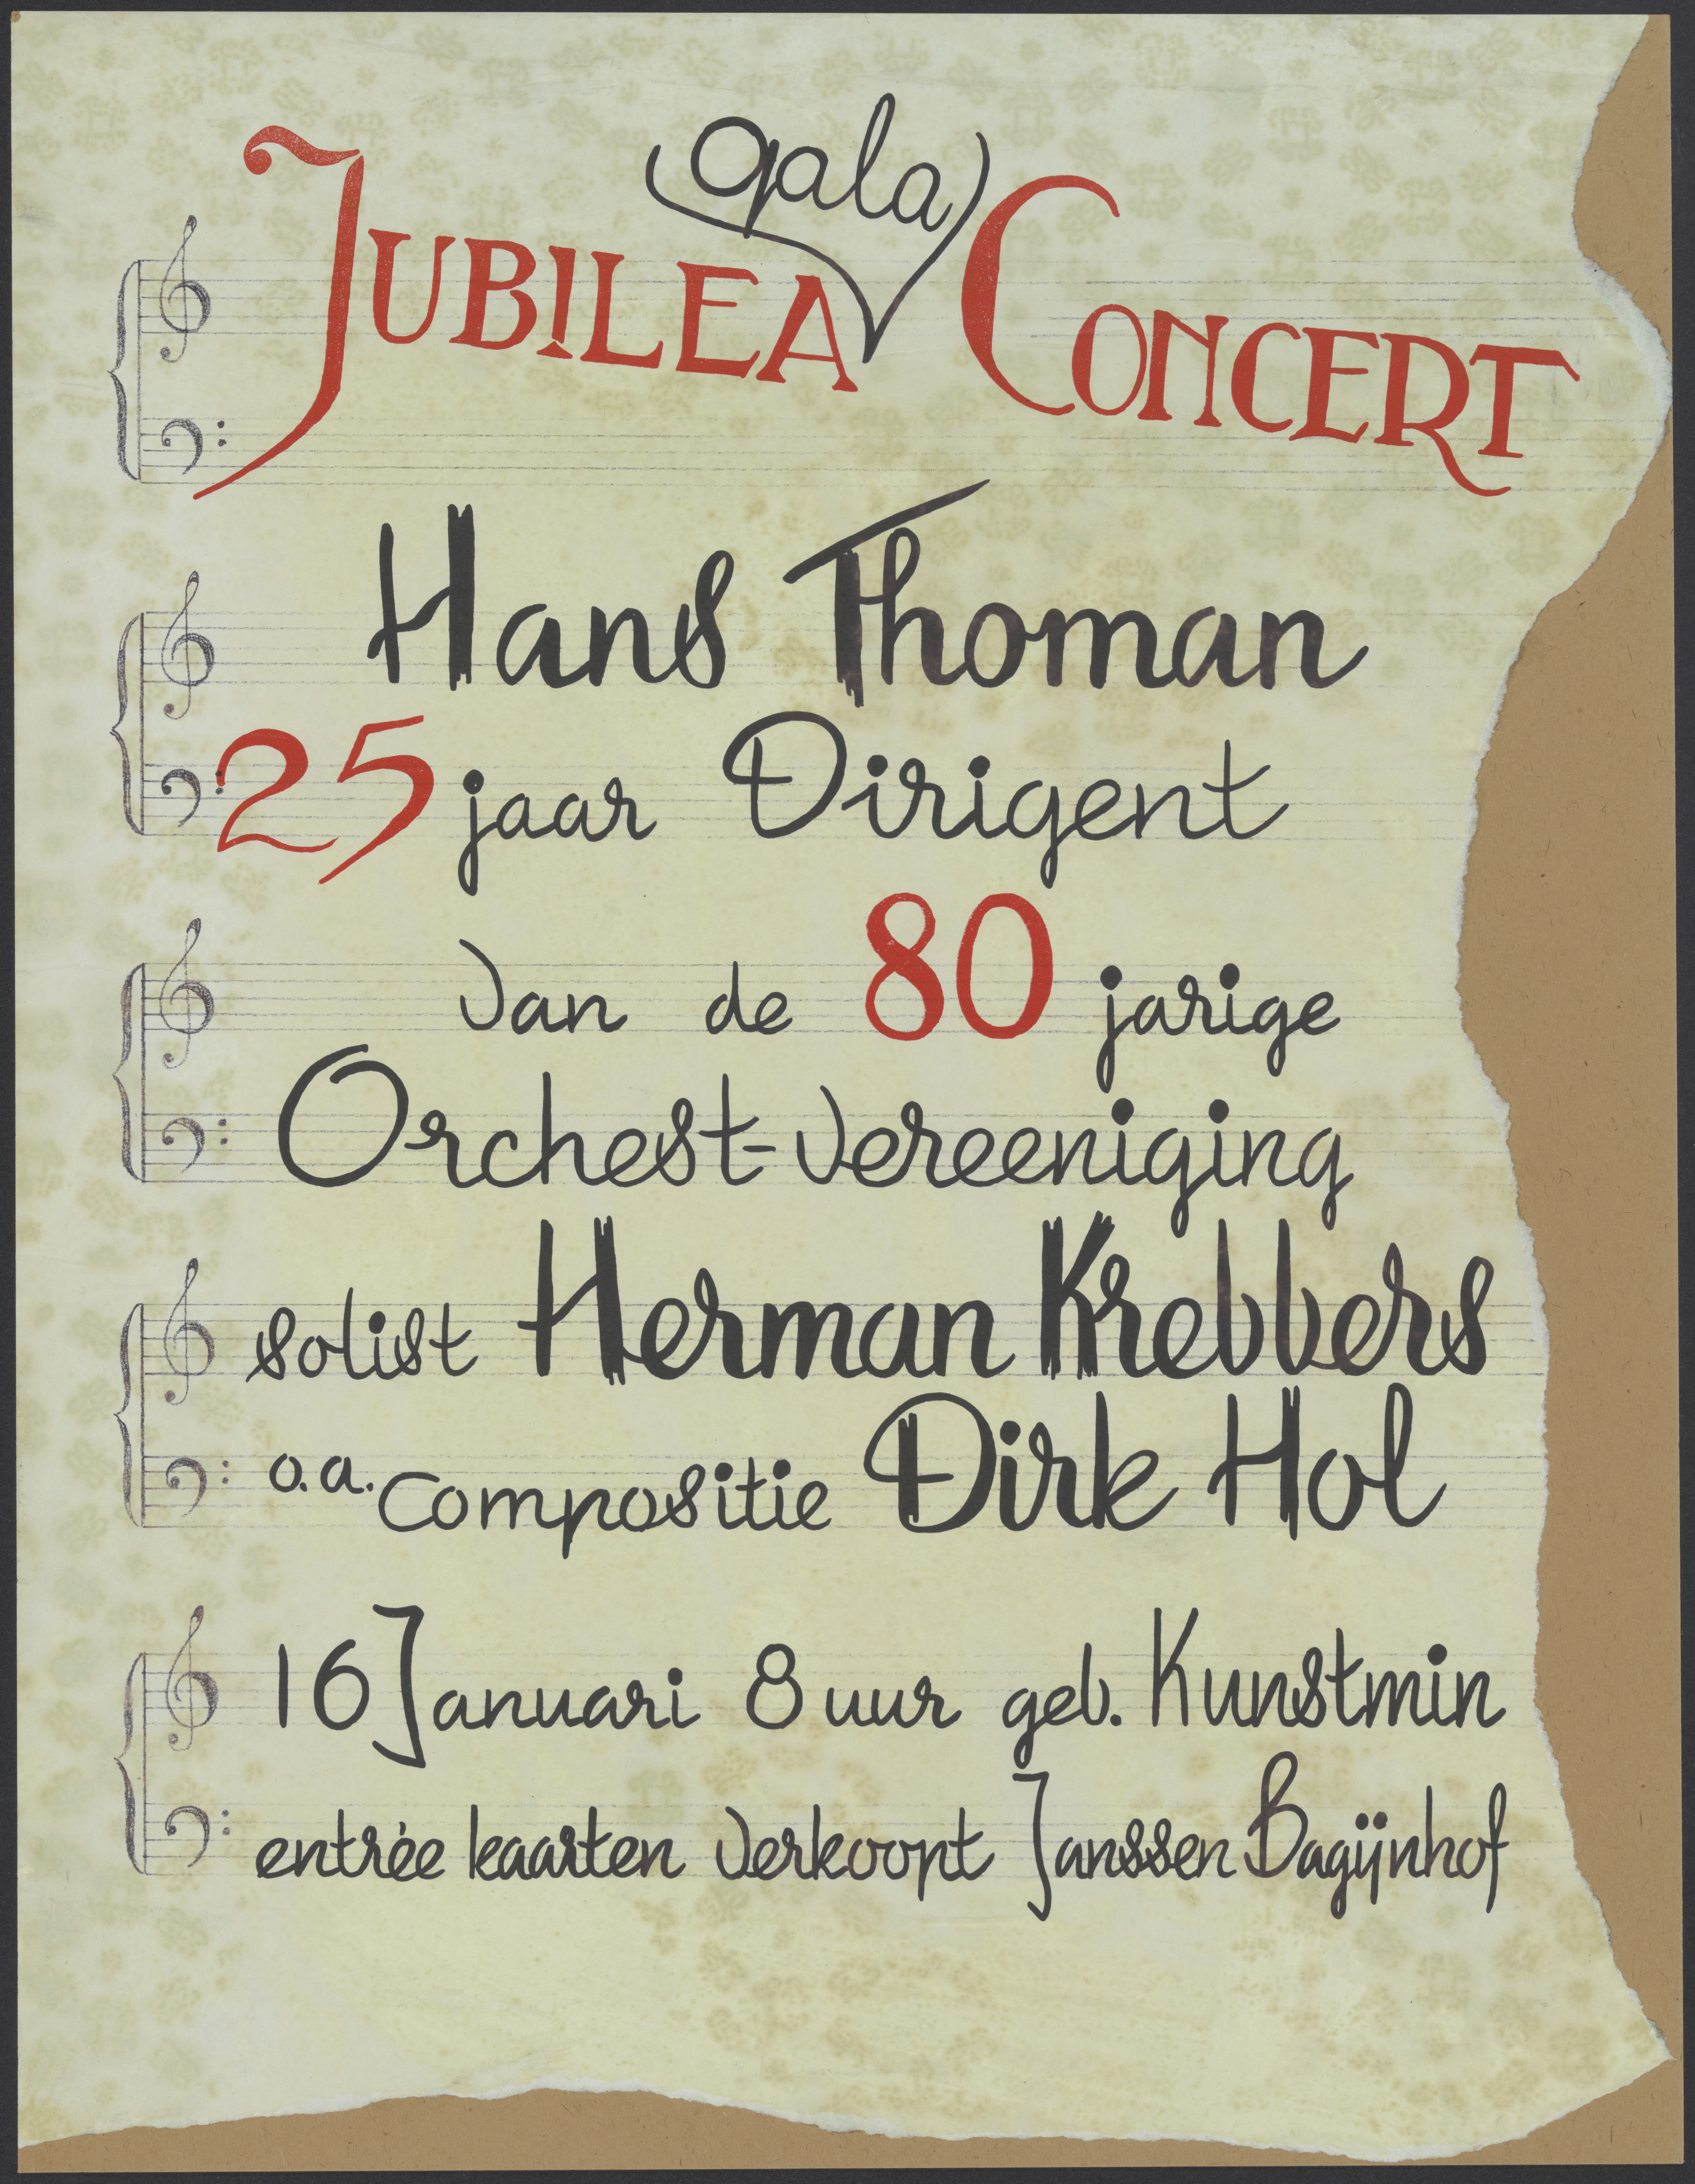 JUBILEA gala CONCERT
Hans Thoman
25 jaar Dirigent
van de 80 jarige
Orchest-vereeniging
solist Herman Krebbers
o.a. compositie Dirk Hol
16 Januari 8 uur geb. Kunstmin
entrée kaarten verkoopt Janssen Bagijnhof